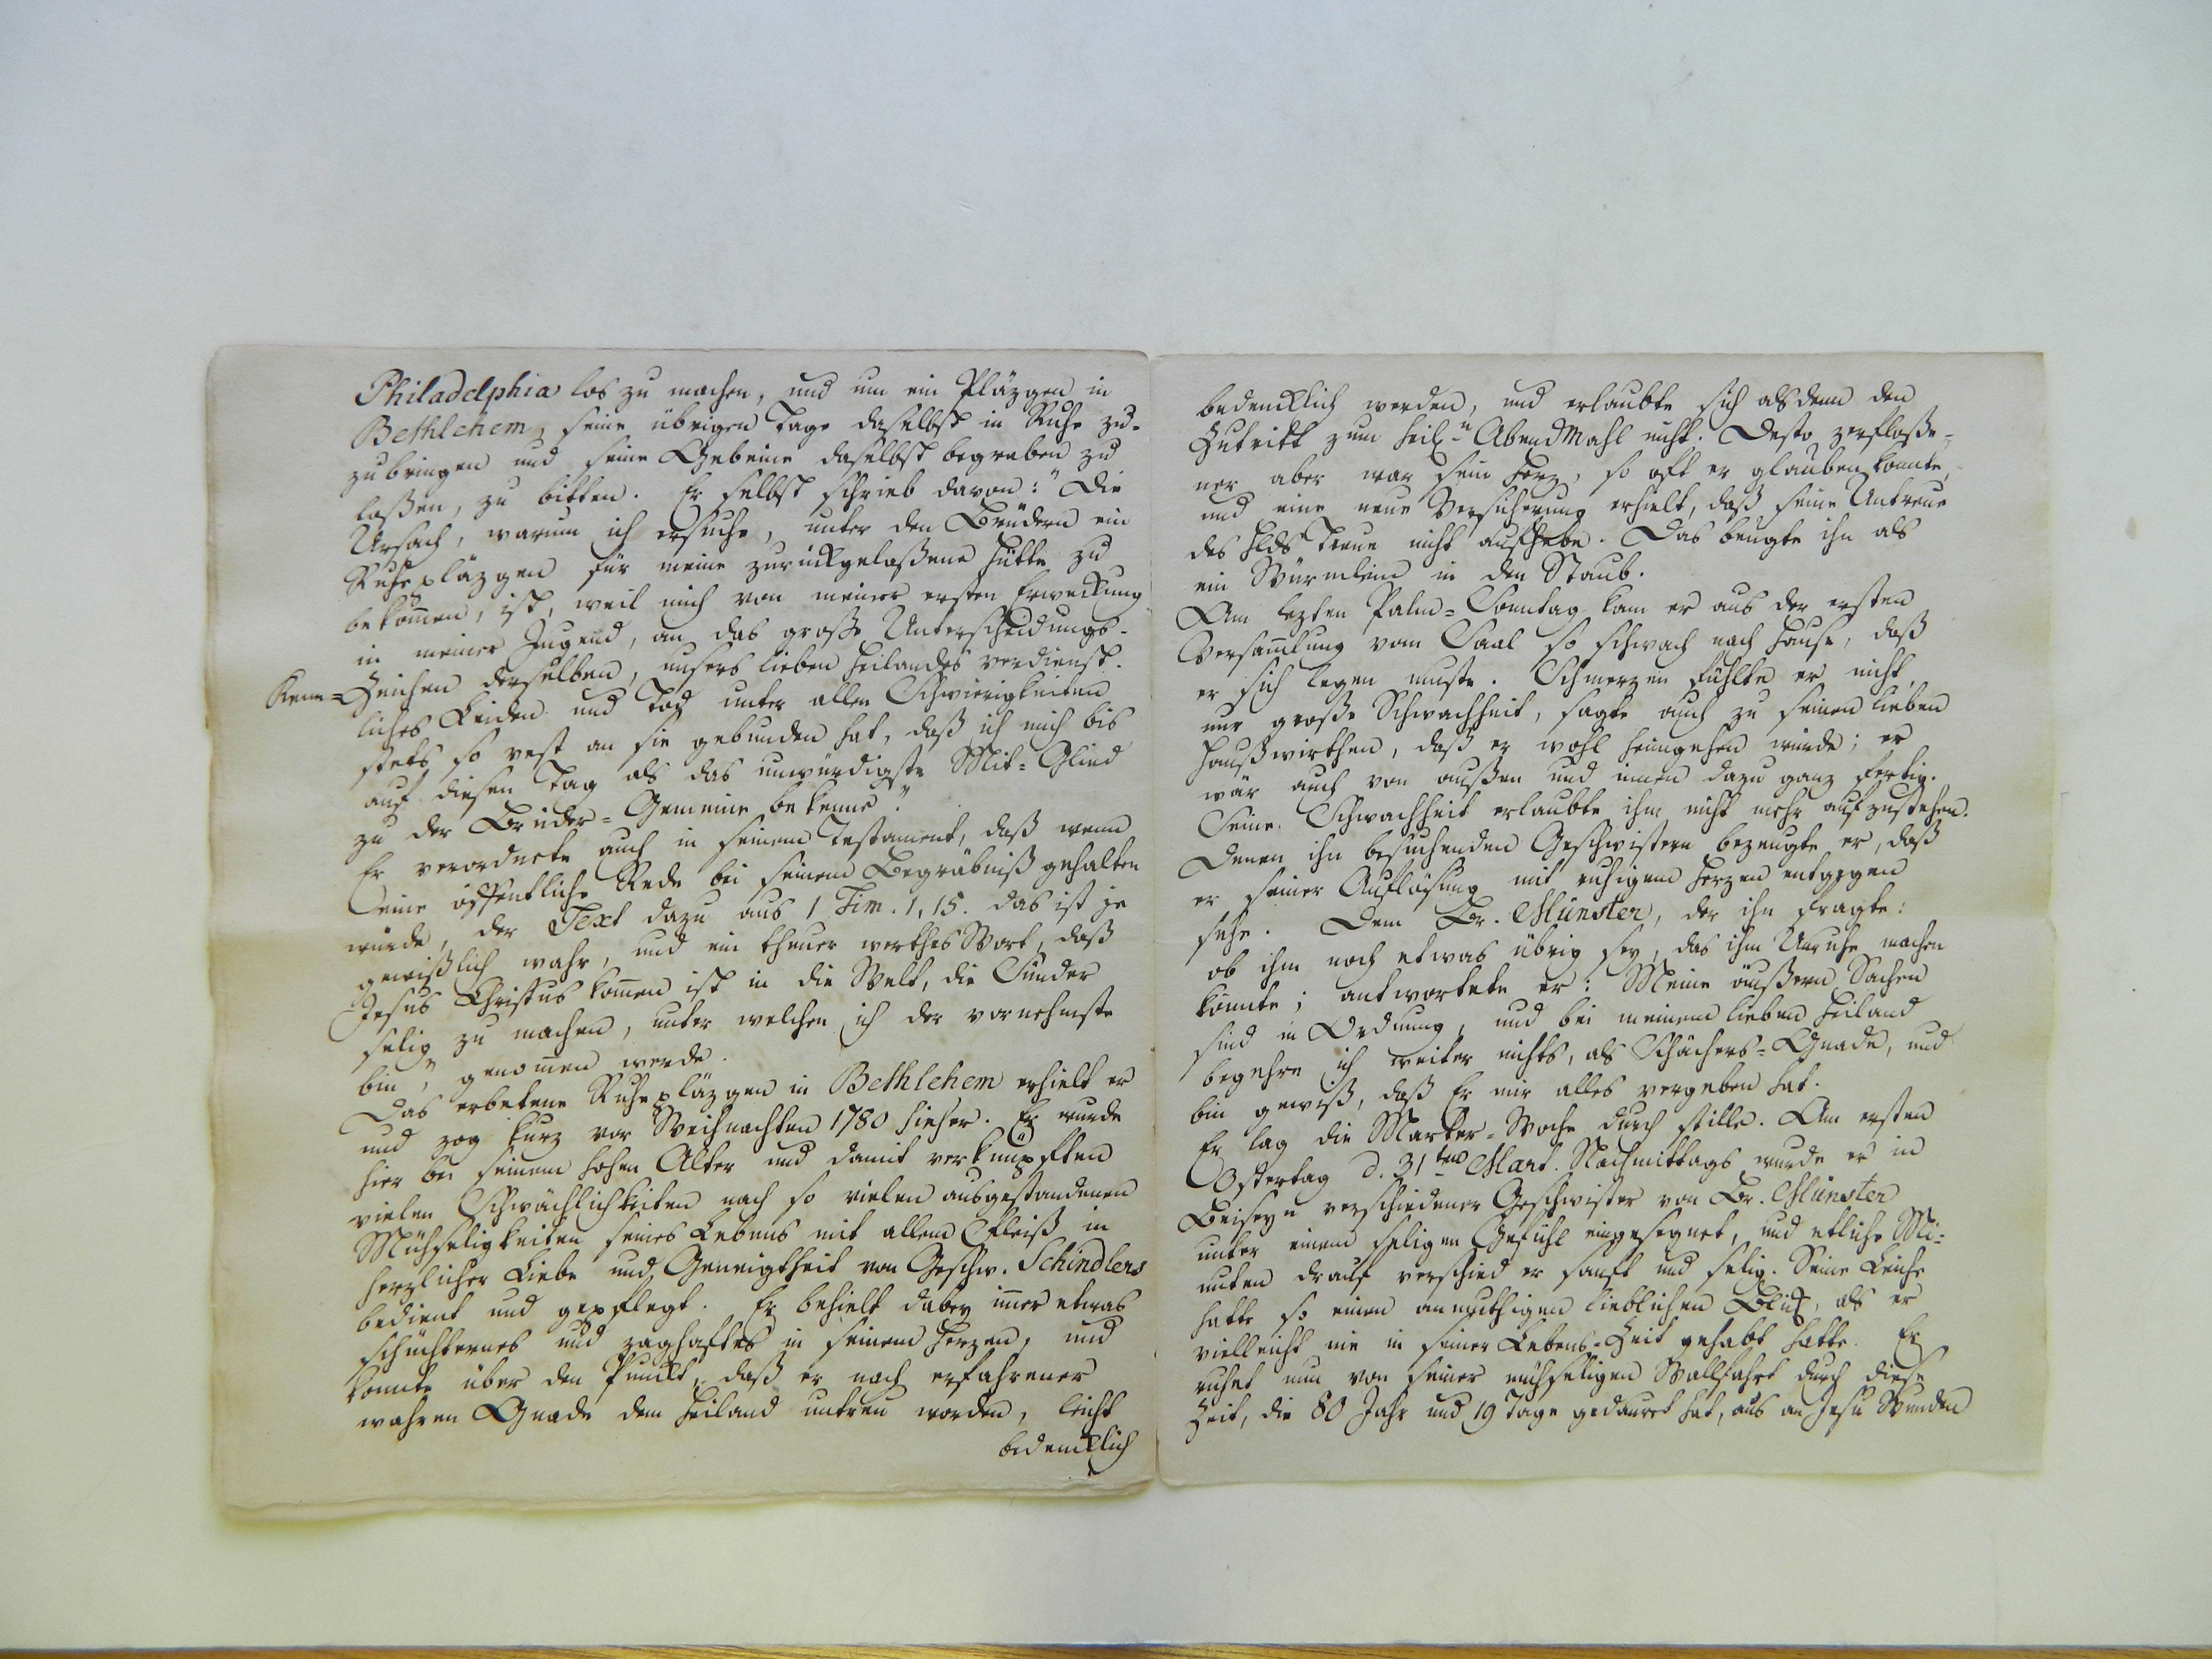 Philadelphia los zu machen, und um ein Pläzgen in
Bethlehem, seine übrigen Tage daselbst in Ruhe zu-
zubringen und seine Gebeine daselbst begraben zu
laßen, zu bitten. Er selbst schrieb davon: "Die
Ursach, warum ich ersuche, unter den Brüdern ein
Ruhepläzgen für meine zurückgelaßene Hütte zu
bekom̄en, ist, weil mich von meiner ersten Erweckung
in meiner Jugend, an das große Unterscheidungs-
Kenn-Zeichen derselben, unsers lieben Heilandes verdienst-
liches Leiden und Tod unter allen Schwierigkeiten
stets so vest an sie gebunden hat, daß ich mich bis
auf diesen Tag als das unwürdigste Mit-Glied
zu der Brüder-Gemeine bekenne."
Er verordnete auch in seinem Testament, daß wenn
eine öffentliche Rede bei seinem Begräbniß gehalten
würde, der Text dazu aus 1 Tim. 1, 15. das ist je
gewißlich wahr, und ein theuer werthes Wort, daß
Jesus Christus kom̄en ist in die Welt, die Sünder
selig zu machen, unter welchen ich der vornehmste
bin", genom̄en werde.
Das erbetene Ruhepläzgen in Bethlehem erhielt er
und zog kurz vor Weihnachten 1780 hieher. Er wurde
hier bei seinem hohen Alter und damit verknüpften
vielen Schwächlichkeiten nach so vielen ausgestandenen
Mühseligkeiten seines Lebens mit allem Fleiß in
herzlicher Liebe und Geneigtheit von Geschw. Schindlers
bedient und gepflegt. Er behielt dabey im̄er etwas
schüchternes und zaghaftes in seinem Herzen, und
konnte über den Punckt, daß er nach erfahrener
wahren Gnade dem Heiland untreu worden, leicht
bedencklich
bedencklich werden, und erlaubte sich alsdenn den
Zutritt zum heilⁿ AbendMahl nicht. Desto zerfloße-
ner aber war sein Herz, so oft er glauben konnte,
und eine neue Versicherung erhielt, daß seine Untreue
des Hlds Treue nicht aufhebe. Das beugte ihn als
ein Würmlein in den Staub.
Am lezten Palm-Sonntag kam er aus der ersten
Versam̄lung vom Saal so schwach nach Hause, daß
er sich legen muste. Schmerzen fühlte er nicht,
nur große Schwachheit, sagte auch zu seinen lieben
Haußwirthen, daß er wohl heimgehen würde; er
wär auch von außen und innen dazu ganz fertig.
Seine Schwachheit erlaubte ihm nicht mehr aufzustehen.
Denen ihn besuchenden Geschwistern bezeugte er, daß
er seiner Auflösung mit ruhigem Herzen entgegen
sehe. Dem Br. Münster, der ihn fragte:
ob ihm noch etwas übrig sey, das ihm Unruhe machen
könnte; antwortete er: Meine äußern Sachen
sind in Ordnung, und bei meinem lieben Heiland
begehre ich weiter nichts, als Schächers-Gnade, und
bin gewiß, daß Er mir alles vergeben hat.
Er lag die Marter-Woche durch stille. Am ersten
Ostertag d. 31ten Mart. Nachmittags wurde er in
Beiseyn verschiedener Geschwister von Br. Münster
unter einem seligen Gefühl eingesegnet, und etliche Mi-
nuten drauf verschied er sanft und selig. Seine Leiche
hatte so einen anmuthigen lieblichen Blick, als er
vielleicht nie in seiner Lebens-Zeit gehabt hatte. Er
ruhet nun von seiner mühseligen Wallfahrt durch diese
Zeit, die 80 Jahr und 19 Tage gedauret hat, aus an Jesu Wunden